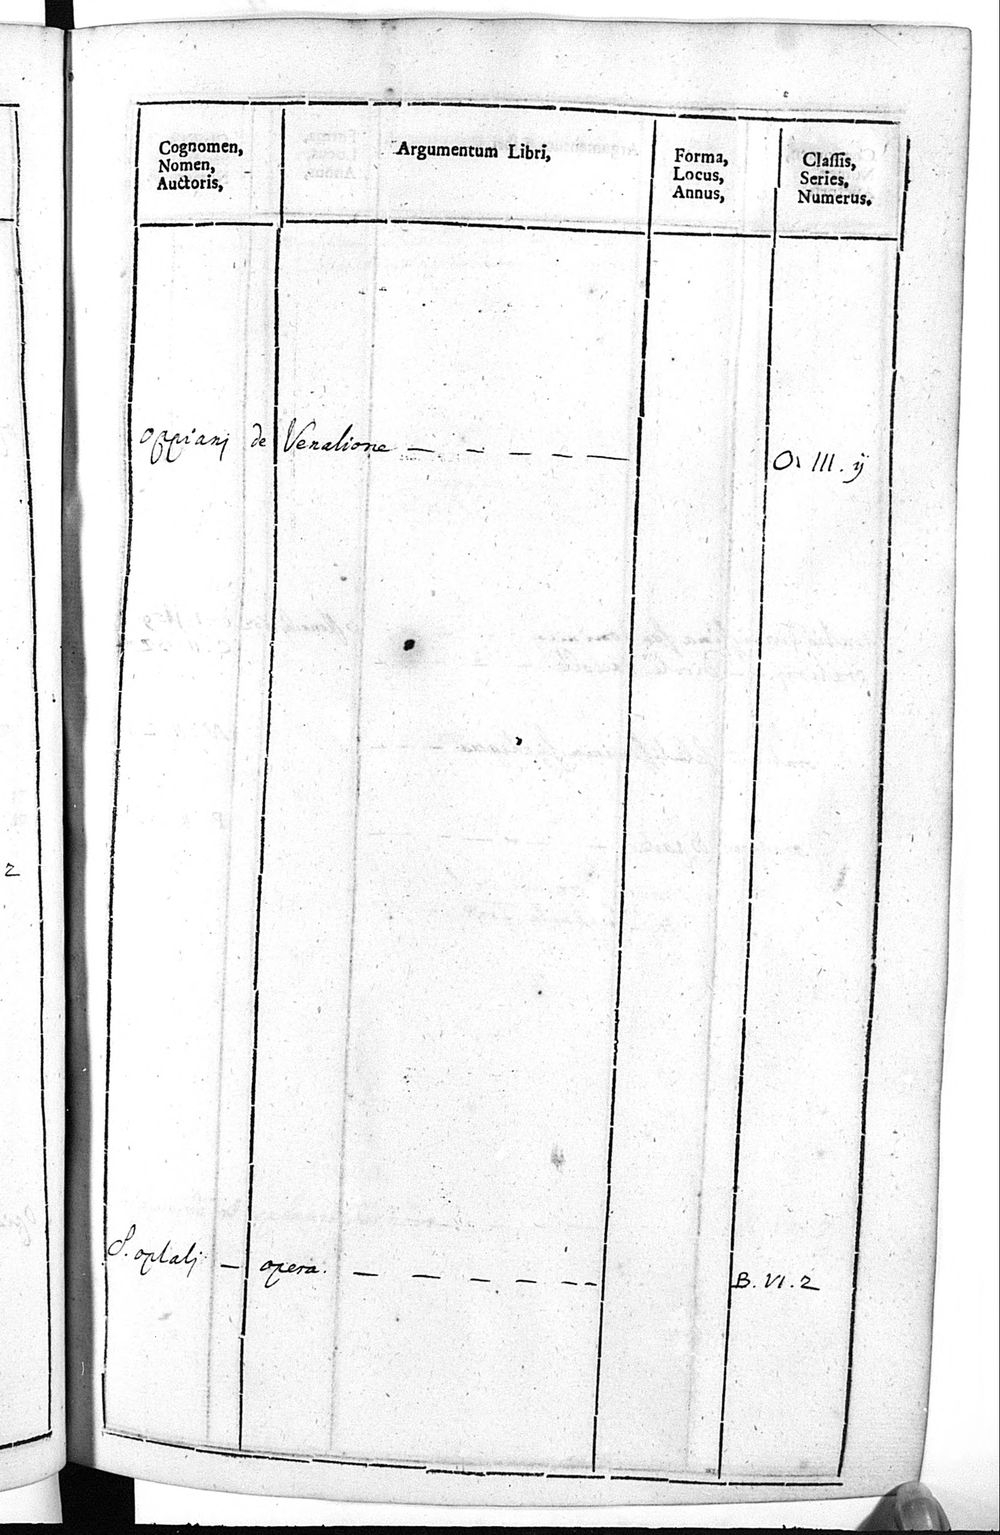 Cognomen,
Nomen,
Auctoris,
Argumentum Libri,
Forma,
Locus,
Annus,
Classis,
Series,
Numerus.
oppianj de Venatione — - — — — O. III. ij
2
S. optatj — opera. — — — — - - B. VI. 2